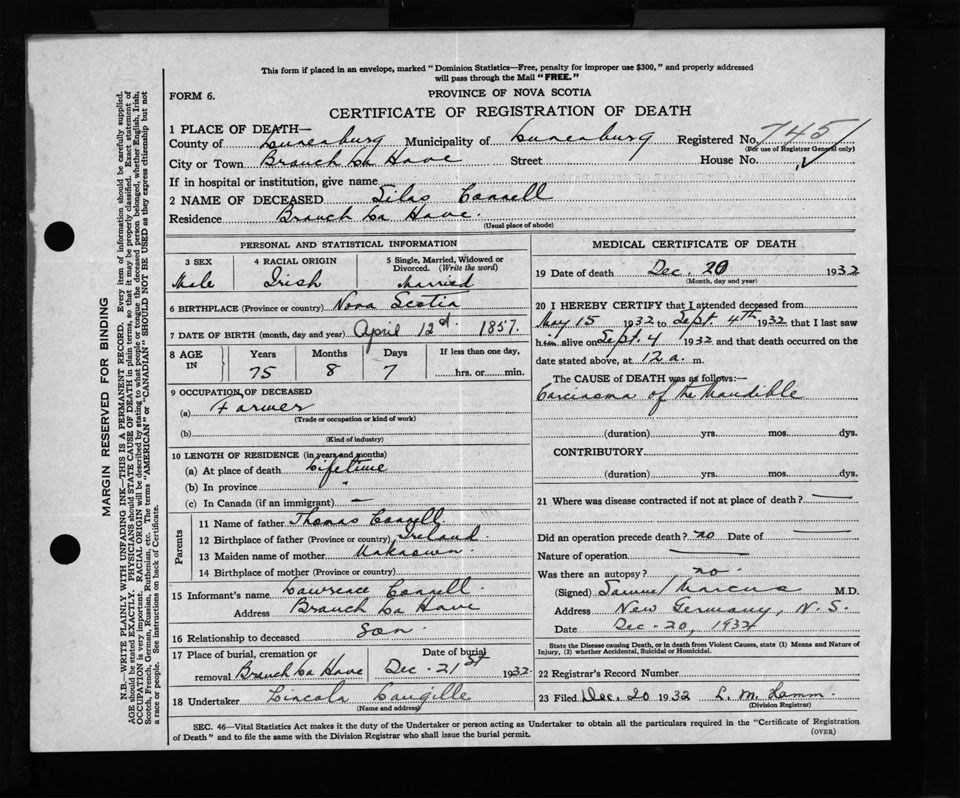 This form if placed in an envelope, marked "Dominion Statistics—Free, penalty for improper use $300," and properly addressed
will pass through the Mail "FREE."
FORM 6.
PROVINCE OF NOVA SCOTIA
CERTIFICATE OF REGISTRATION OF DEATH
1 PLACE OF DEATH—
County of Lunenburg Municipality of Lunenburg Registered No. 745
(For use of Registrar General only)
City or Town Branch La Have Street House No.
If in hospital or institution, give name
2 NAME OF DECEASED Silas Connell
Residence Branch La Have.
(Usual place of abode)
PERSONAL AND STATISTICAL INFORMATION
3 SEX 4 RACIAL ORIGIN 5 Single, Married, Widowed or Divorced. (Write the word)
Male Irish Married
6 BIRTHPLACE (Province or country) Nova Scotia
7 DATE OF BIRTH (month, day and year) April 12d 1857.
8 AGE IN Years Months Days If less than one day,
75 8 7 hrs. or min.
9 OCCUPATION OF DECEASED
(a) Farmer
(Trade or occupation or kind of work)
(b)
(Kind of industry)
10 LENGTH OF RESIDENCE (in years and months)
(a) At place of death Lifetime
(b) In province "
(c) In Canada (if an immigrant) —
Parents
11 Name of father Thomas Connell
12 Birthplace of father (Province or country) Ireland
13 Maiden name of mother Unknown
14 Birthplace of mother (Province or country)
15 Informant's name Lawrence Connell
Address Branch La Have
16 Relationship to deceased Son
17 Place of burial, cremation or removal Branch La Have Date of burial Dec. 21st 1932
18 Undertaker Lincoln
(Name and address)
MEDICAL CERTIFICATE OF DEATH
19 Date of death Dec. 20 1932
(Month, day and year)
20 I HEREBY CERTIFY that I attended deceased from
May 15 1932 to Sept 4th 1932 that I last saw
him alive on Sept. 4 1932 and that death occurred on the
date stated above, at 12 a. m.
The CAUSE OF DEATH was as follows:—
Carcinoma of the Mandible
(duration) yrs. mos. dys.
CONTRIBUTORY
(duration) yrs. mos. dys.
21 Where was disease contracted if not at place of death?
Did an operation precede death? no Date of
Nature of operation
Was there an autopsy? no.
(Signed) Marcus M.D.
Address New Germany, N.S.
Date Dec-20, 1932
State the Disease causing Death, or in death from Violent Causes, state (1) Means and Nature of
Injury, (2) whether Accidental, Suicidal or Homicidal.
22 Registrar's Record Number
23 Filed Dec. 20 1932 L. M.
(Division Registrar)
SEC. 46—Vital Statistics Act makes it the duty of the Undertaker or person acting as Undertaker to obtain all the particulars required in the "Certificate of Registration
of Death" and to file the same with the Division Registrar who shall issue the burial permit.
(OVER)
MARGIN RESERVED FOR BINDING
N.B.—WRITE PLAINLY WITH UNFADING INK—THIS IS A PERMANENT RECORD. Every item of information should be carefully supplied.
AGE should be stated EXACTLY. PHYSICIANS should STATE CAUSE OF DEATH in plain terms, so that it may be properly classified. Exact statement of
OCCUPATION is very important. RACIAL ORIGIN will be described by stating to what people or tongue the deceased person belonged, whether English, Irish,
Scotch, French, German, Russian, Ruthenian, etc. The terms "AMERICAN" or "CANADIAN" SHOULD NOT BE USED as they express citizenship but not
a race or people. See instructions on back of Certificate.